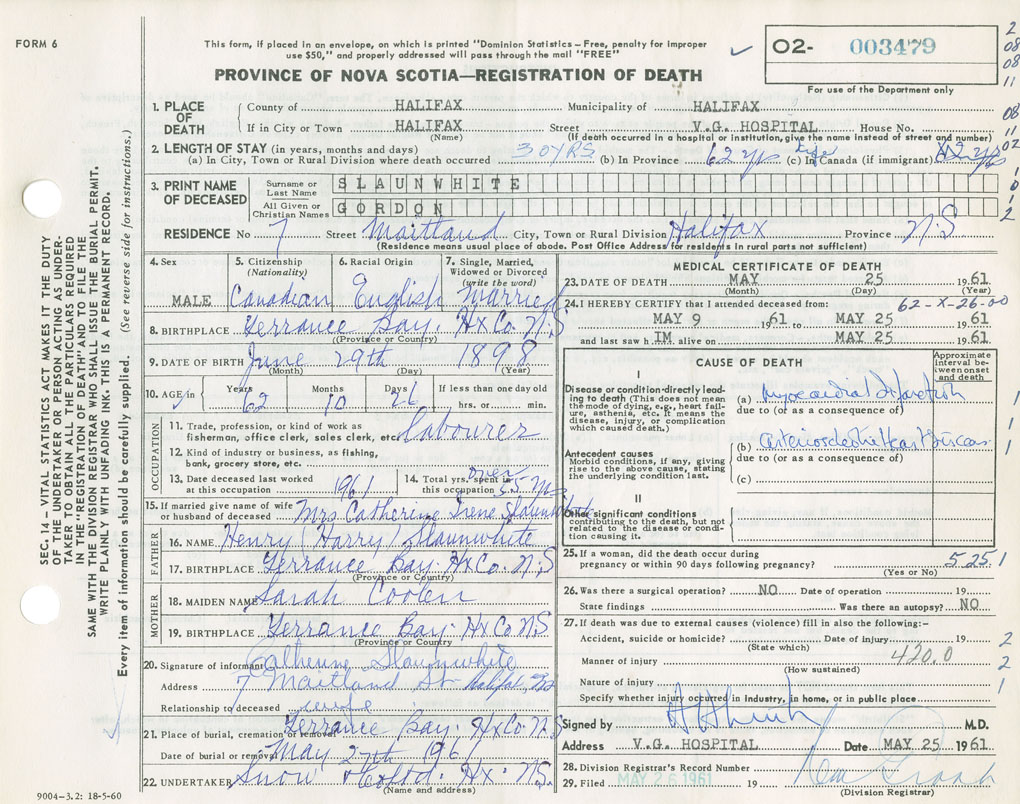 FORM 6
This form, if placed in an envelope, on which is printed "Dominion Statistics – Free, penalty for improper
use $50," and properly addressed will pass through the mail "FREE"
O2- 003479
For use of the Department only
PROVINCE OF NOVA SCOTIA—REGISTRATION OF DEATH
1. PLACE OF DEATH
County of HALIFAX Municipality of HALIFAX
If in City or Town HALIFAX Street V.G. HOSPITAL House No.
(Name) (If death occurred in a hospital or institution, give the name instead of street and number)
2. LENGTH OF STAY (in years, months and days)
(a) In City, Town or Rural Division where death occurred 30 YRS (b) In Province 62 yrs (c) In Canada (if immigrant) Life
3. PRINT NAME OF DECEASED
Surname or Last Name SLAUNWHITE
All Given or Christian Names GORDON
RESIDENCE No 7 Street Maitland City, Town or Rural Division Halifax Province N.S
(Residence means usual place of abode. Post Office Address for residents in rural parts not sufficient)
4. Sex MALE
5. Citizenship (Nationality) Canadian
6. Racial Origin English
7. Single, Married, Widowed or Divorced (write the word) Married
8. BIRTHPLACE Terrance Bay. Hx Co. N.S
(Province or Country)
9. DATE OF BIRTH June 29th 1898
(Month) (Day) (Year)
10. AGE in Years 62 Months 10 Days 26 If less than one day old
hrs. or min.
OCCUPATION
11. Trade, profession, or kind of work as
fisherman, office clerk, sales clerk, etc. labourer
12. Kind of industry or business, as fishing,
bank, grocery store, etc.
13. Date deceased last worked
at this occupation 1961
14. Total yrs. spent in
this occupation over 35 yrs
15. If married give name of wife
or husband of deceased Mrs Catherine Irene Slaunwhite
FATHER
16. NAME Henry (Harry) Slaunwhite
17. BIRTHPLACE Terrance Bay. Hx Co. N.S
(Province or Country)
MOTHER
18. MAIDEN NAME Sarah Coolen
19. BIRTHPLACE Terrance Bay. Hx Co N.S.
(Province or Country)
20. Signature of informant Catherine Slaunwhite
Address 7 Maitland St Halifax, N.S
Relationship to deceased
21. Place of burial, cremation or removal Terrance Bay. Hx Co N.S
Date of burial or removal May 27th 1961
22. UNDERTAKER Snow & Co Ltd. Hx. N.S.
(Name and address)
9004–3.2: 18-5-60
MEDICAL CERTIFICATE OF DEATH
23. DATE OF DEATH MAY 25 1961
(Month) (Day) (Year)
24. I HEREBY CERTIFY that I attended deceased from: 62-X-26-00
MAY 9 1961 to MAY 25 1961
and last saw h IM alive on MAY 25 1961
CAUSE OF DEATH
Approximate interval between onset and death
I
Disease or condition directly leading to death (This does not mean the mode of dying, e.g., heart failure, asthenia, etc. It means the disease, injury, or complication which caused death.)
(a) Myocardial Infarction
due to (or as a consequence of)
Antecedent causes
Morbid conditions, if any, giving rise to the above cause, stating the underlying condition last.
(b) arteriosclerotic Heart Disease
due to (or as a consequence of)
(c)
II
Other significant conditions
contributing to the death, but not related to the disease or condition causing it.
25. If a woman, did the death occur during
pregnancy or within 90 days following pregnancy? 5.25.1
(Yes or No)
26. Was there a surgical operation? NO Date of operation 19
State findings Was there an autopsy? NO
27. If death was due to external causes (violence) fill in also the following:-
Accident, suicide or homicide? Date of injury 19
(State which)
Manner of injury 420.0
(How sustained)
Nature of injury
Specify whether injury occurred in industry, in home, or in public place
Signed by M.D.
Address V.G. HOSPITAL Date MAY 25 1961
28. Division Registrar's Record Number
29. Filed MAY 26 1961 19
(Division Registrar)
SEC. 14 – VITAL STATISTICS ACT MAKES IT THE DUTY
OF THE UNDERTAKER OR PERSON ACTING AS UNDER-
TAKER TO OBTAIN ALL THE PARTICULARS REQUIRED
IN THE "REGISTRATION OF DEATH" AND TO FILE THE
SAME WITH THE DIVISION REGISTRAR WHO SHALL ISSUE THE BURIAL PERMIT.
WRITE PLAINLY WITH UNFADING INK. THIS IS A PERMANENT RECORD.
Every item of information should be carefully supplied. (See reverse side for instructions.)
2
08
08
11
08
11
02
1
0
1
2
1
1
1
1
2
2
1